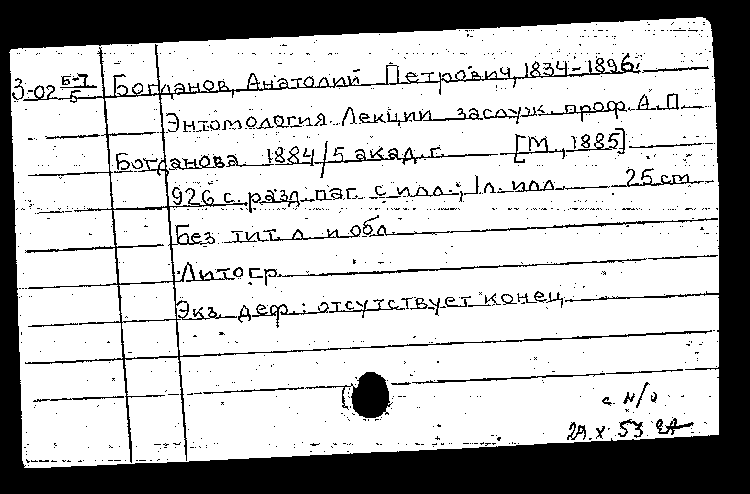 З-02 Б-7/5 Богданов, Анатолий Петрович, 1834-1896.
Энтомология. Лекции заслуж. проф. А.П.
Богданова. 1884/5 акад. г. [М., 1885]
926 с. разд. паг. с илл.; 1 л. илл. 25 cm
Без тит. л. и обл.
Литогр.
Экз. деф.: отсутствует конец.
с н/о
29 X 53